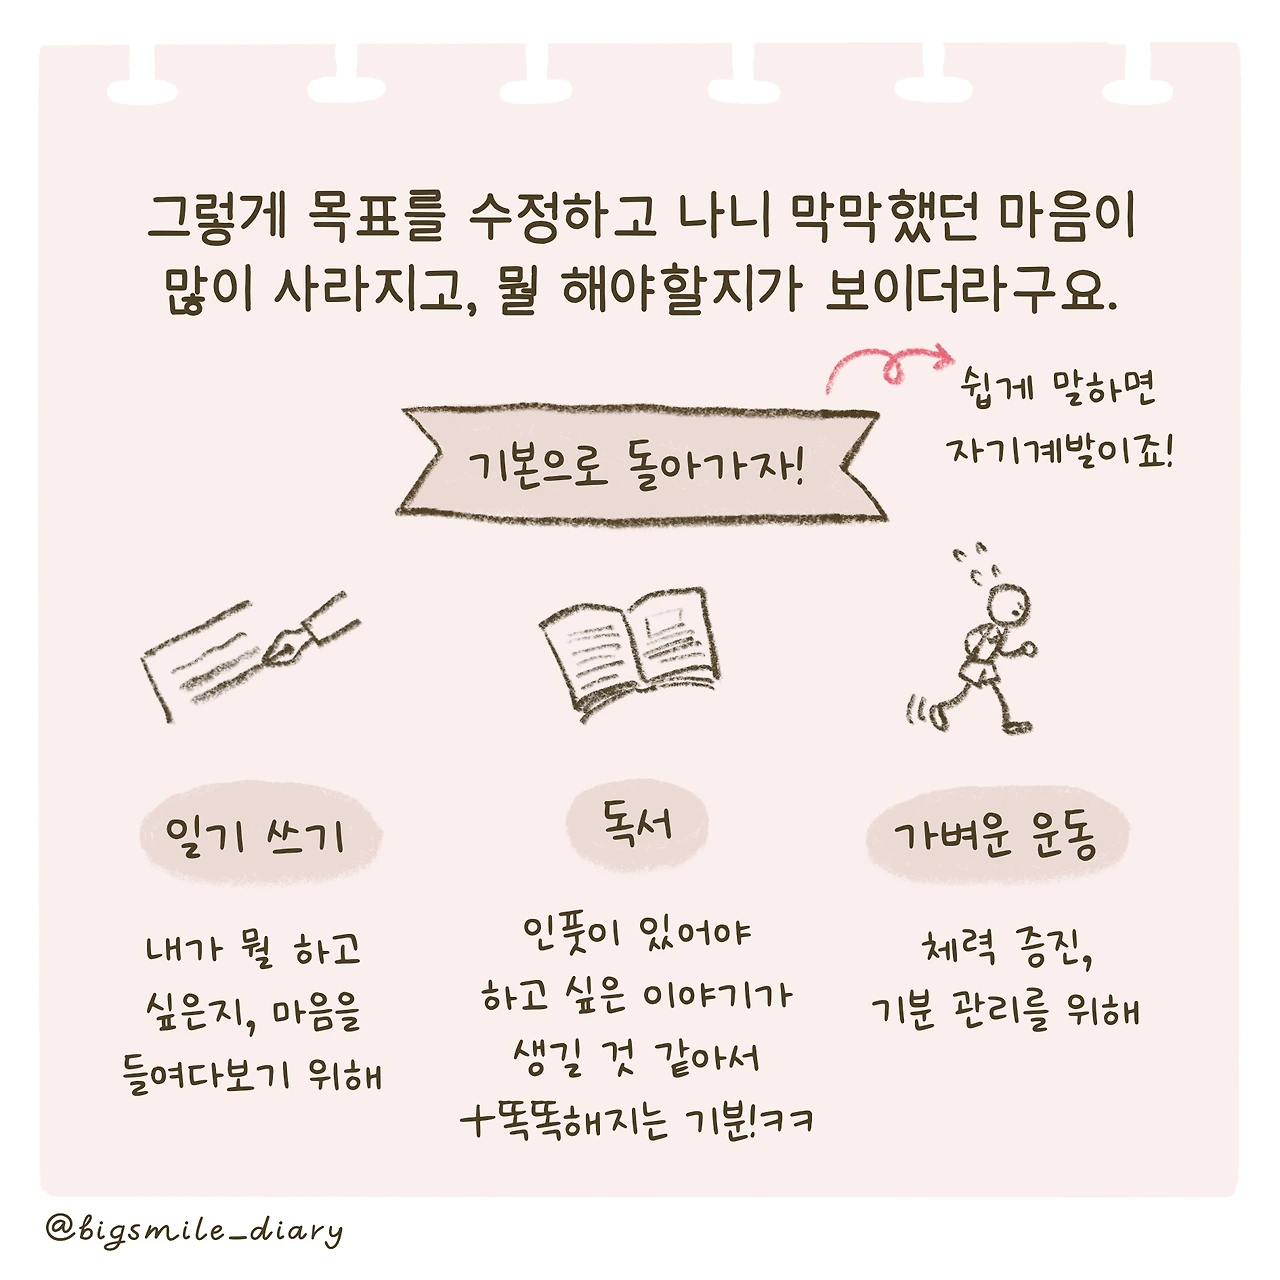 그렇게 목표를 수정하고 나니 막막했던 마음이
많이 사라지고, 뭘 해야할지가 보이더라구요.
쉽게 말하면
자기계발이죠!
기본으로 돌아가자!
일기 쓰기
내가 뭘 하고
싶은지, 마음을
들여다보기 위해
독서
인풋이 있어야
하고 싶은 이야기가
생길 것 같아서
+똑똑해지는 기분!ㅋㅋ
가벼운 운동
체력 증진,
기분 관리를 위해
@bigsmile_diary